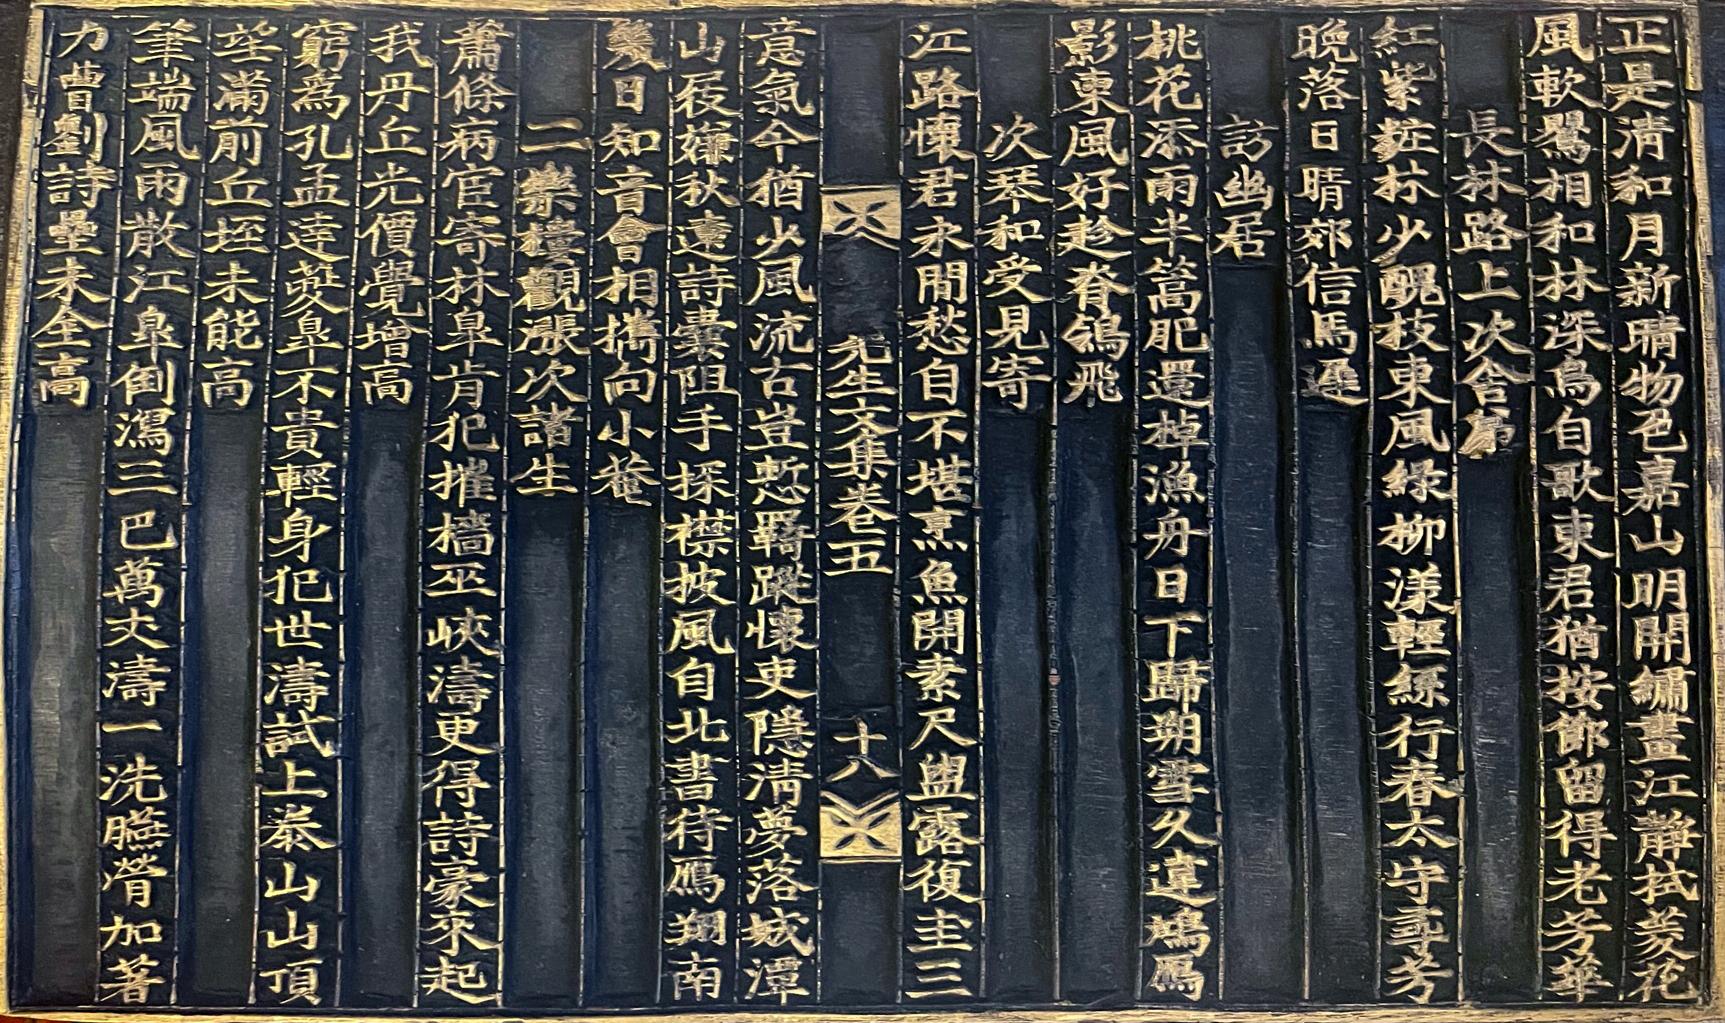 正是清和月新晴物色嘉山明開繡畫江靜拭菱花
風軟鶯相和林深鳥自歌東君猶按節留得老芳華
長林路上次舍弟
紅紫粧林少醜枝東風綠柳漾輕絲行春太守尋芳
晚落日晴郊信馬遲
訪幽居
桃花添雨半篙肥還棹漁舟日下歸朔雪久違鴻鴈
影東風好趁脊鴒飛
次琴和受見寄
江路懷君未間愁自不堪烹魚開素尺盥露復圭三
先生文集卷五 十八
意氣今猶少風流古豈慙羇蹤懷吏隱淸夢落城潭
山屐嫌秋遠詩囊阻手探襟披風自北書待鴈翔南
幾日知音會相携向小菴
二樂樓觀漲次諸生
蕭條病宦寄林臯肯犯摧檣巫峽濤更得詩豪來起
我丹丘光價覺增高
窮爲孔孟達夔臯不貴輕身犯世濤試上泰山山頂
望滿前丘垤未能高
筆端風雨散江臯倒瀉三巴萬丈濤一洗臙膋加著
力曹劉詩壘未全高